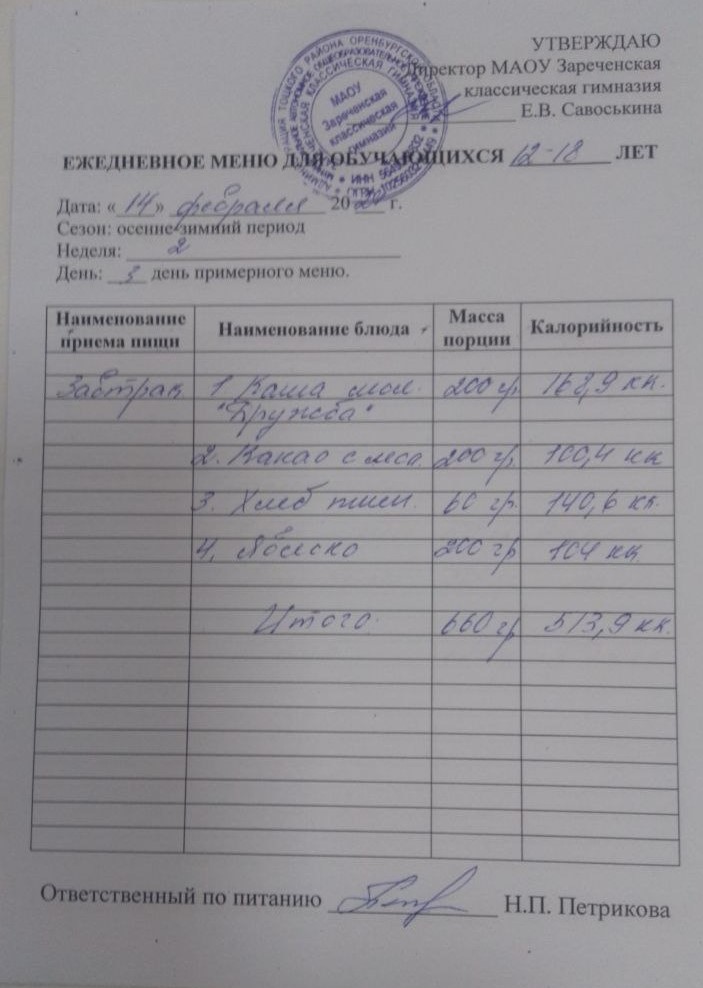 УТВЕРЖДАЮ
Директор МАОУ Зареченская
классическая гимназия
Е.В. Савоськина
МАОУ
Зареченская
классическая
гимназия
ЕЖЕДНЕВНОЕ МЕНЮ ДЛЯ ОБУЧАЮЩИХСЯ 12-18 ЛЕТ
Дата: «14» февраля 20 г.
Сезон: осенне-зимний период
Неделя: 2
День: 3 день примерного меню.
Наименование приема пищи Наименование блюда Масса порции Калорийность
Завтрак 1 Каша мол. 200 гр 168,9 кк.
"Дружба"
2. Какао с мол. 200 гр. 100,4 кк
3. Хлеб пшен. 60 гр. 140,6 кк.
4. Яблоко 200 гр 104 кк
Итого. 660 гр 513,9 кк.
Ответственный по питанию Н.П. Петрикова